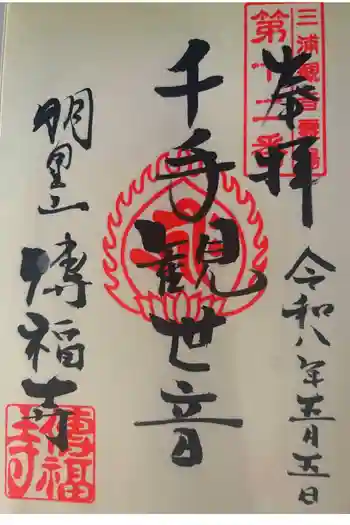 三浦観音霊場
第十二番
奉拝
令和八年五月五日
千手観世音
明星山 傳福寺
傳福寺